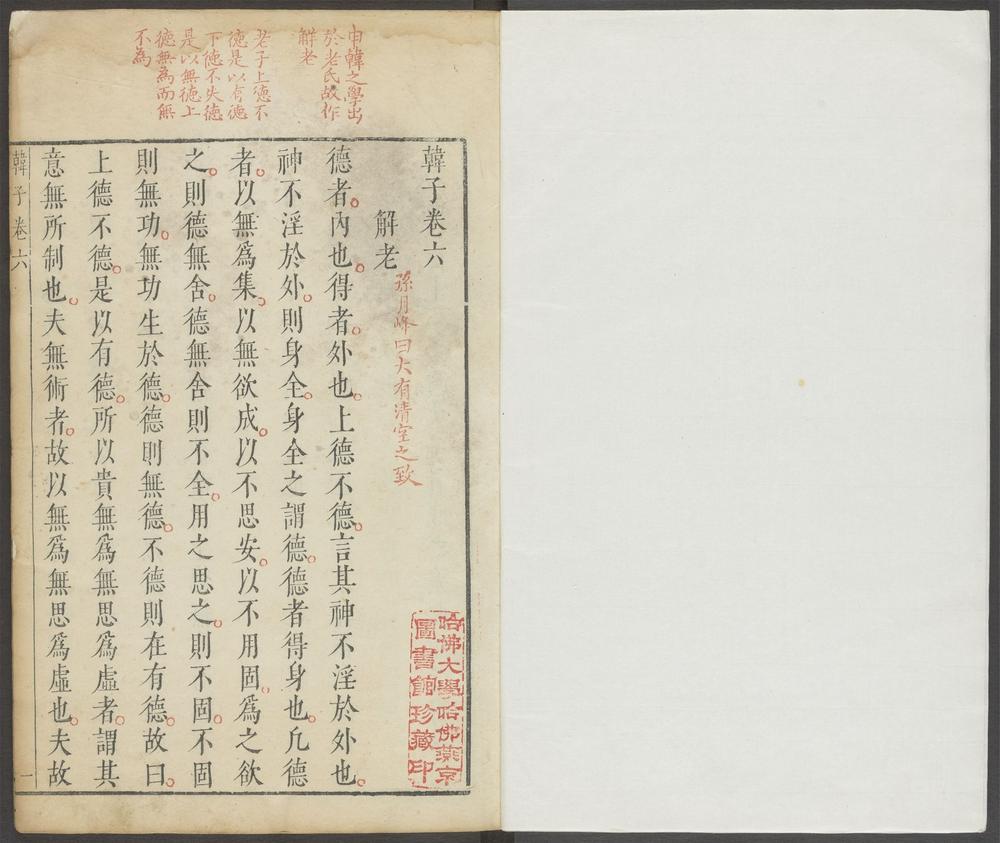 申韓之學出
於老氏故作
解老
老子上德不
德是以有德
下德不失德
是以無德上
德無為而無
不為
韓子卷六
解老
孫月峰曰大有清空之致
德者。內也。得者。外也。上德不德。言其神不淫於外也。
神不淫於外。則身全。身全之謂德。德者得身也。凡德
者。以無爲集。以無欲成。以不思安。以不用固。爲之欲
之。則德無舍。德無舍則不全。用之思之。則不固。不固
則無功。無功生於德。德則無德。不德則在有德。故曰。
上德不德。是以有德。所以貴無爲無思爲虛者。謂其
意無所制也。夫無術者。故以無爲無思爲虛也。夫故
韓子卷六
一
哈佛大學哈佛燕京
圖書館珍藏印